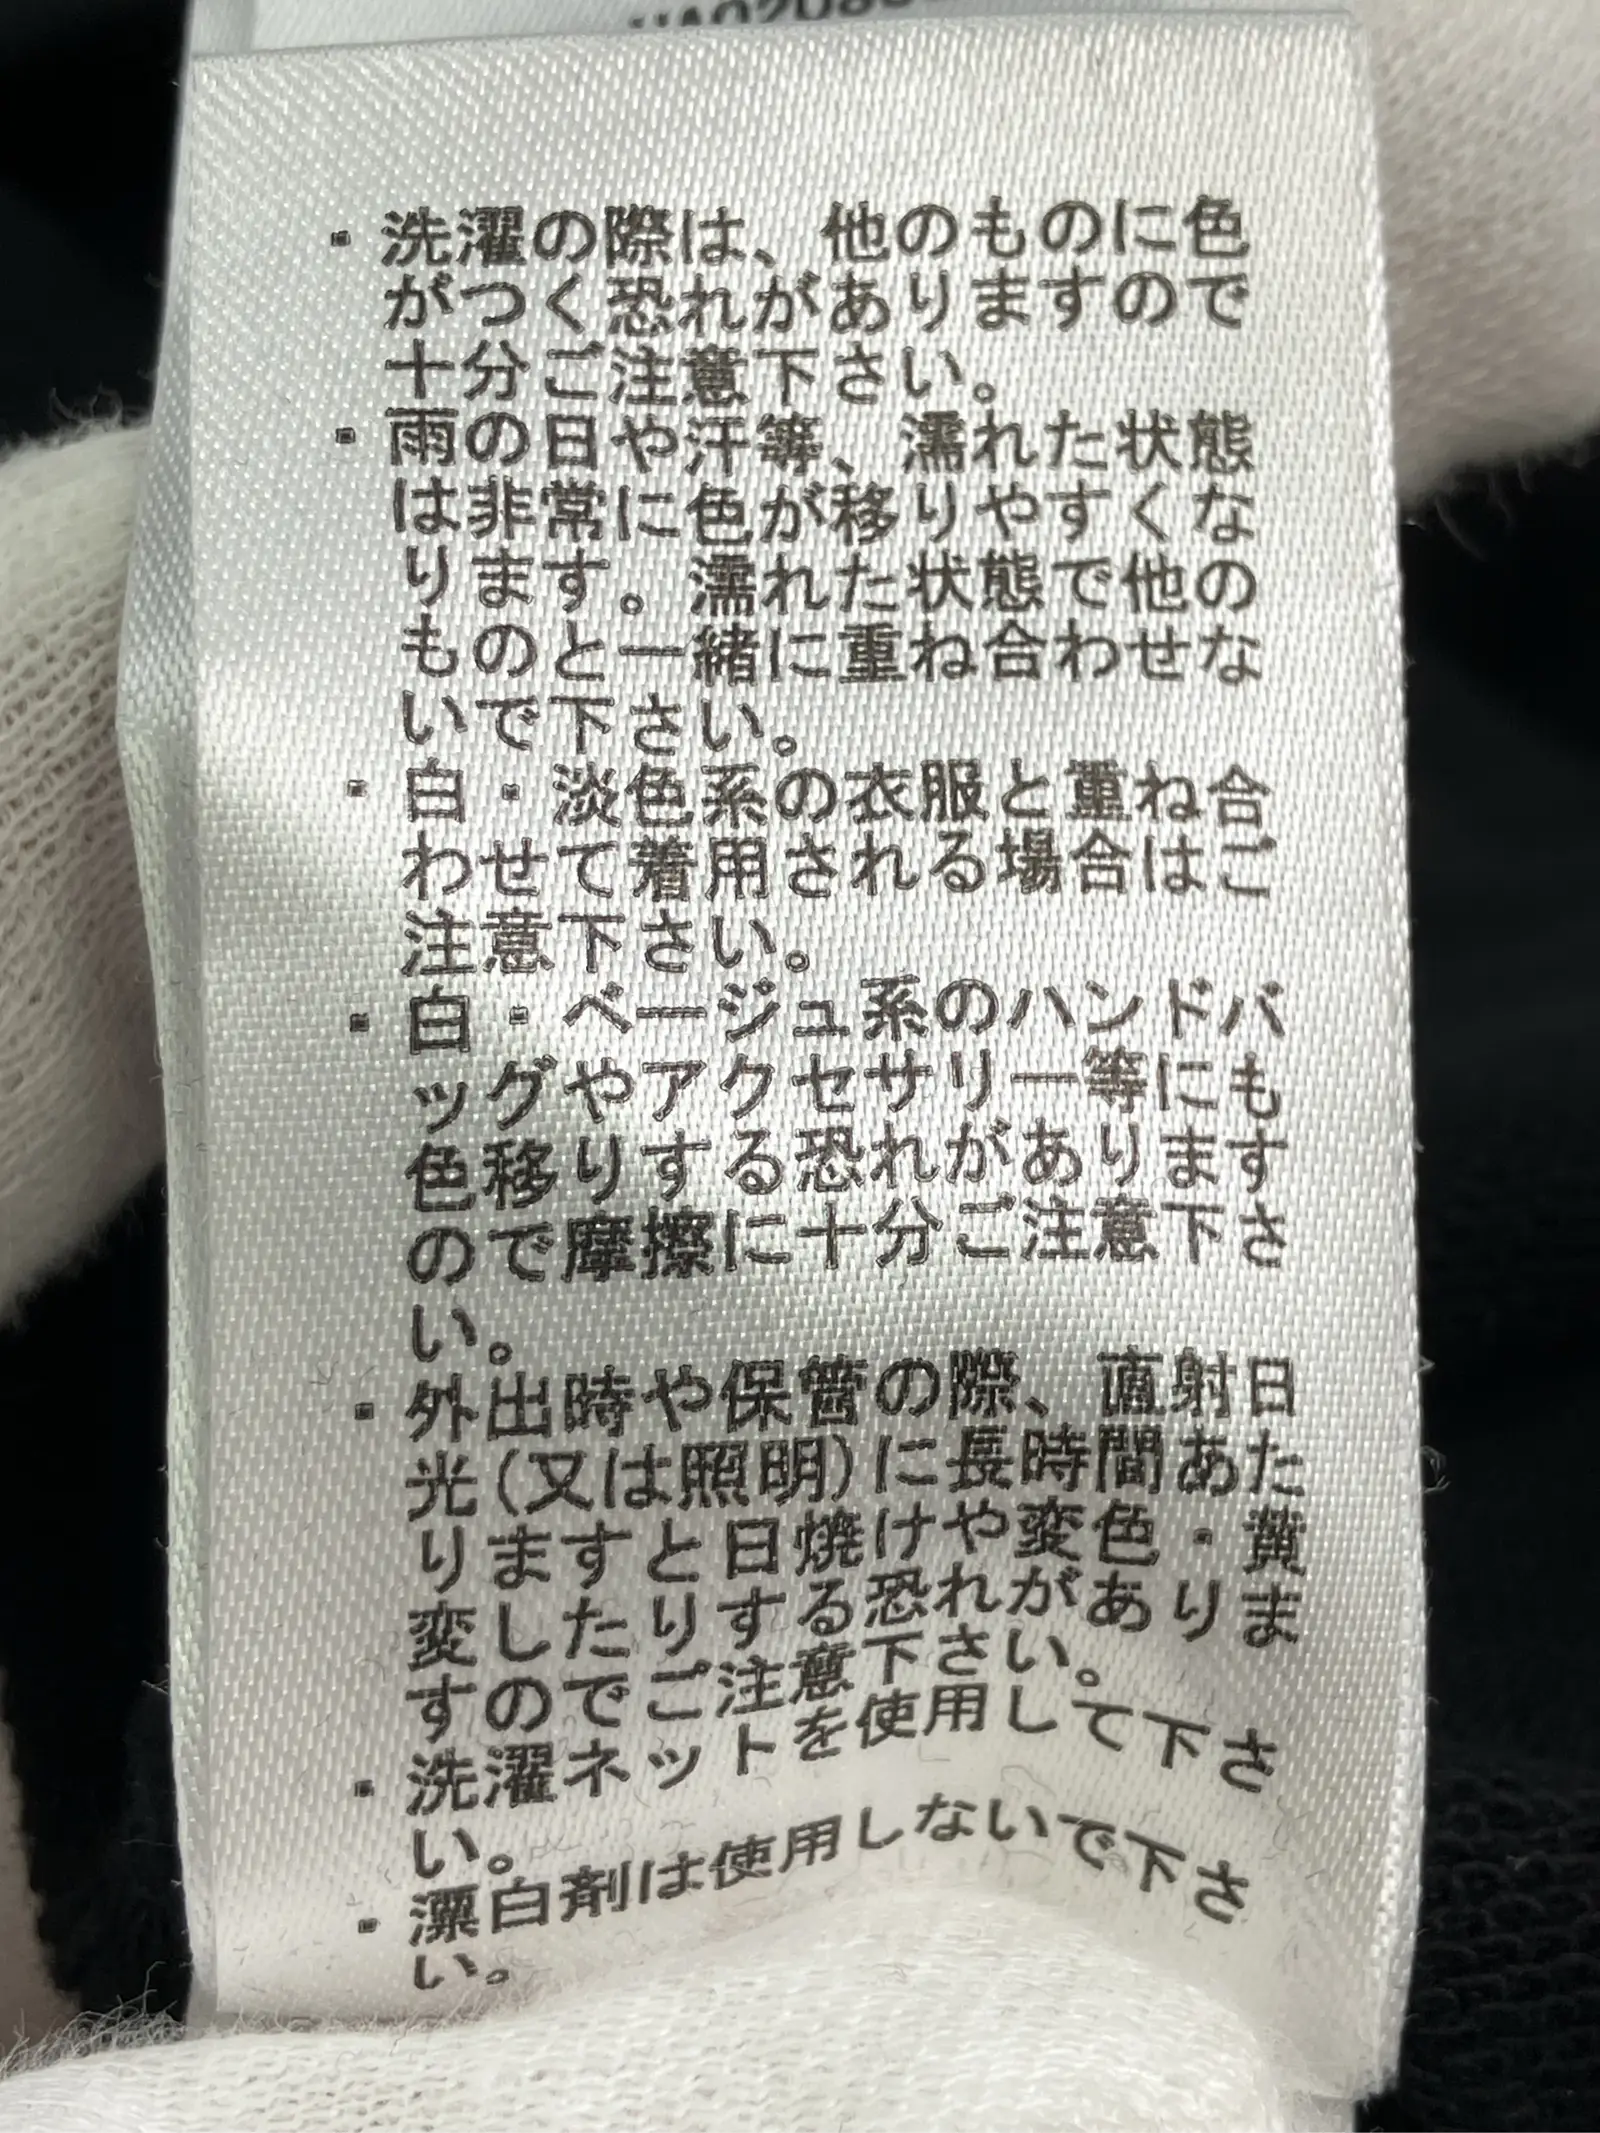 ・洗濯の際は、他のものに色
がつく恐れがありますので
十分ご注意下さい。
・雨の日や汗等、濡れた状態
は非常に色が移りやすくな
ります。濡れた状態で他の
ものと一緒に重ね合わせな
いで下さい。
・白・淡色系の衣服と重ね合
わせて着用される場合はご
注意下さい。
・白・ベージュ系のハンドバ
ッグやアクセサリー等にも
色移りする恐れがあります
ので摩擦に十分ご注意下さ
い。
・外出時や保管の際、直射日
光(又は照明)に長時間あた
りますと日焼けや変色・黄
変したりする恐れがありま
すのでご注意下さい。
・洗濯ネットを使用して下さ
い。
・漂白剤は使用しないで下さ
い。